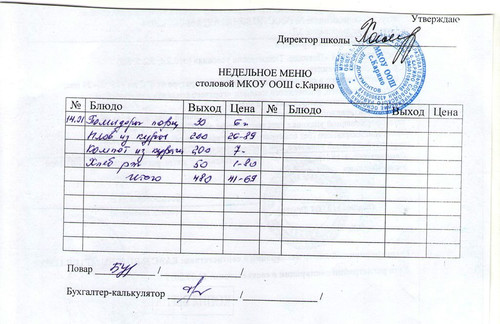 Утверждаю
Директор школы
МКОУ ООШ
с.Карино
НЕДЕЛЬНОЕ МЕНЮ
столовой МКОУ ООШ с.Карино
№ Блюдо Выход Цена № Блюдо Выход Цена
14.01 Помидоры порц 30 6=
Плов из курицы 200 26-89
Компот из 200 7-
Хлеб рж 50 1-80
Итого 480 41-69
Повар / /
Бухгалтер-калькулятор / /